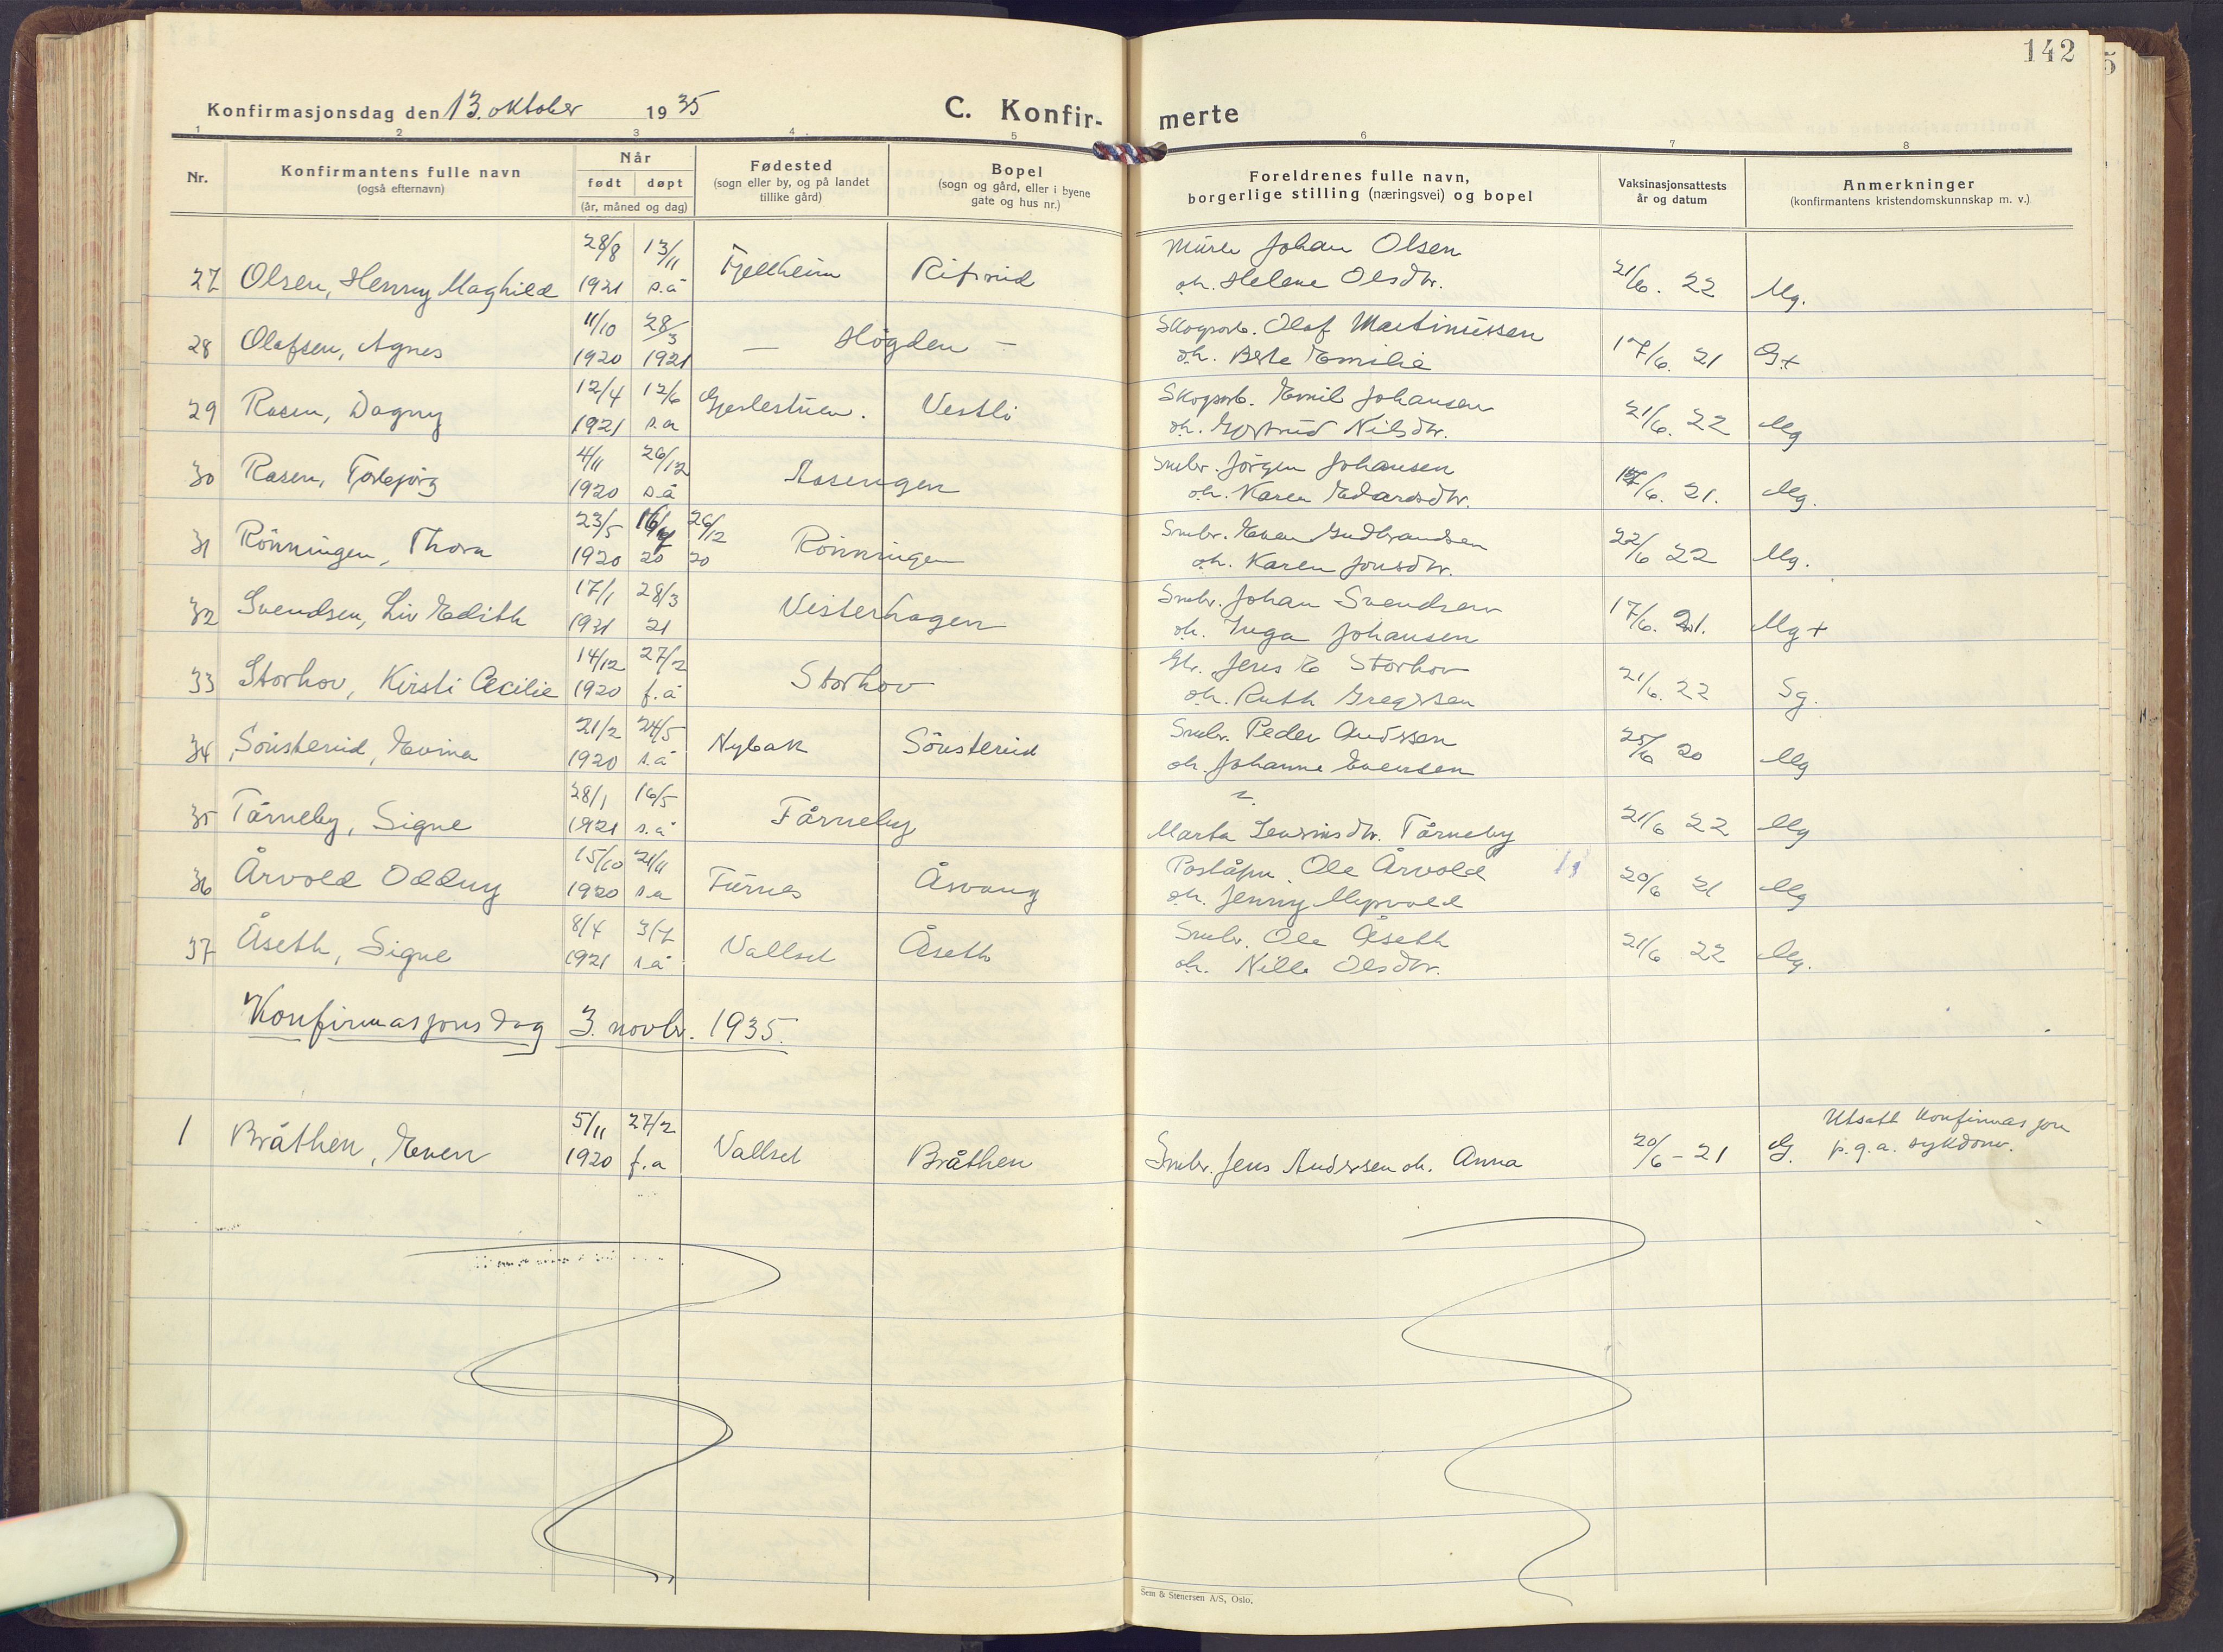 142
Konfirmasjonsdag den 13. oktober 1935
C. Konfir- merte
1 2 3 4 5 6 7 8
Nr.
Konfirmantens fulle navn
(også efternavn)
Når
født døpt
(år, måned og dag)
Fødested
(sogn eller by, og på landet
tillike gård)
Bopel
(sogn og gård, eller i byene
gate og hus nr.)
Foreldrenes fulle navn,
borgerlige stilling (næringsvei) og bopel
Vaksinasjonsattests
år og datum
Anmerkninger
(konfirmantens kristendomskunnskap m. v.)
28/8 13/11 Murer Johan Olsen
27 Olsen, Henny Maghild 1921 s.å Fjellheim oh. Helene Olsdtr. 21/6. 22 Mg.
11/10 28/3 Skogsarb. Olaf Martinussen
28 Olafsen, Agnes 1920 1921 — Høgden — oh. Berte Emilie 17/6. 21 G+
12/4 12/6 Skogsarb. Emil Johansen
29 Rasen, Dagny 1921 s.a Gjerlestuen. Vestli oh. Gjertrud Nilsdtr. 21/6. 22 Mg
4/11 26/12 Smbr. Jörgen Johansen
30 Rasen, Torbjörg 1920 s.å Aasengen oh. Karen Edvardsdtr. 17/6. 21. Mg.
23/5 16/7 26/12 Smbr. Even Gudbrandsen
31 Rönningen, Thora 1920 20 20 Rönningen oh. Karen Jonsdtr. 22/6 22 Mg.
17/1 28/3 Smbr. Johan Svendsen
32 Svendsen, Liv Edith 1921 21 Vesterhagen oh. Inga Johansen 17/6. 21. Mg+
14/12 27/2 Gbr. Jens E Storhov
33 Storhov, Kirsti Cecilie 1920 f.å Storhov oh. Ruth Gregersen 21/6. 22 Sg.
21/2 24/5 Smbr. Peder Andersen
34 Sönsterud, Evina 1920 s.å Nybak Sönsterud oh. Johanne Evensen 25/6 20 Mg
28/1 16/5
35 Tårneby, Signe 1921 s.å Tårneby Marta Laurinsdtr. Tårneby 21/6 22 Mg
15/10 21/11 Poståpn. Ole Årvold
36 Årvold Oddny 1920 s.a Furnes Åsvang oh. Jenny Myrvold 20/6 21 Mg
8/4 3/7 Smbr. Ole Åseth
37 Åseth, Signe 1921 s.å Vallset Åseth oh. Nille Olsdtr. 21/6 22 Mg.
Konfirmasjonsdag 3. novbr. 1935.
5/11 27/2 Utsatt konfirmasjon
1 Bråthen, Even 1920 f.a Vallset Bråthen Smbr. Jens Andersen oh. Anna 20/6 - 21 G. p.g.a. sykdom.
Sem & Stenersen A/S, Oslo.